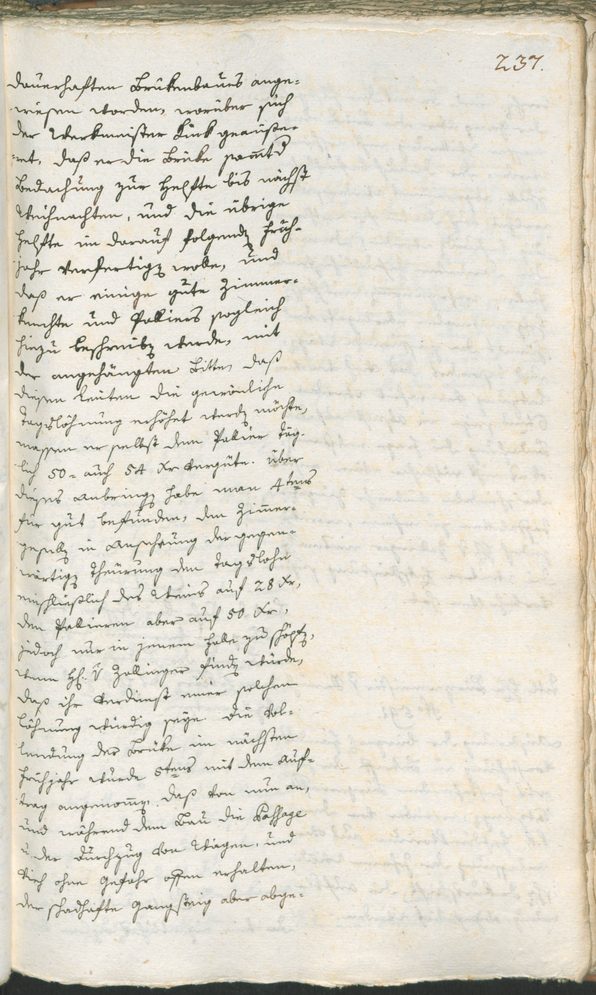 237.
dauerhaften Brükenbaues ange-
wiesen worden, worüber sich
der Werkmeister Kink geäuße-
ret, daß er die Brüke samt
Bedachung zur Helfte bis nächst
Weihnachten, und die übrige
Helfte in darauf folgend Früh-
jahr verfertigen wolle, und
daß er einige gute Zimmer-
knechte und Palliers sogleich
hiezu beschreiben werde, mit
der angehängten Bitte, daß
diesen Leuten die gewönliche
Tagslöhnung erhöhet werden möchte,
massen er selbst dem Palier täg-
lich 50 - auch 54 Xr vergüte. Über
dieses Anbringen habe man 4tens
für gut befunden, den Zimmer-
gesellen in Ansehung der gegen-
wärtigen Theurung den Tagslohn
einschließlich des Weins auf 28 Xr,
den Palieren aber auf 50 Xr,
jedoch nur in jenem Falle zu schöpfen,
wenn Hh. v Zallinger finden würde,
daß ihr Verdienst einer solchen
Löhnung würdig seye. Die Vol-
lendung der Brüke im nächsten
Frühjahr wurde 5tens mit dem Auf-
trag angenommen, daß von nun an,
und während dem Bau die Passage
u. der Durchzug von Wägen, und
Vieh ohne Gefahr offen erhalten,
der schadhafte Gangsteig aber abge-